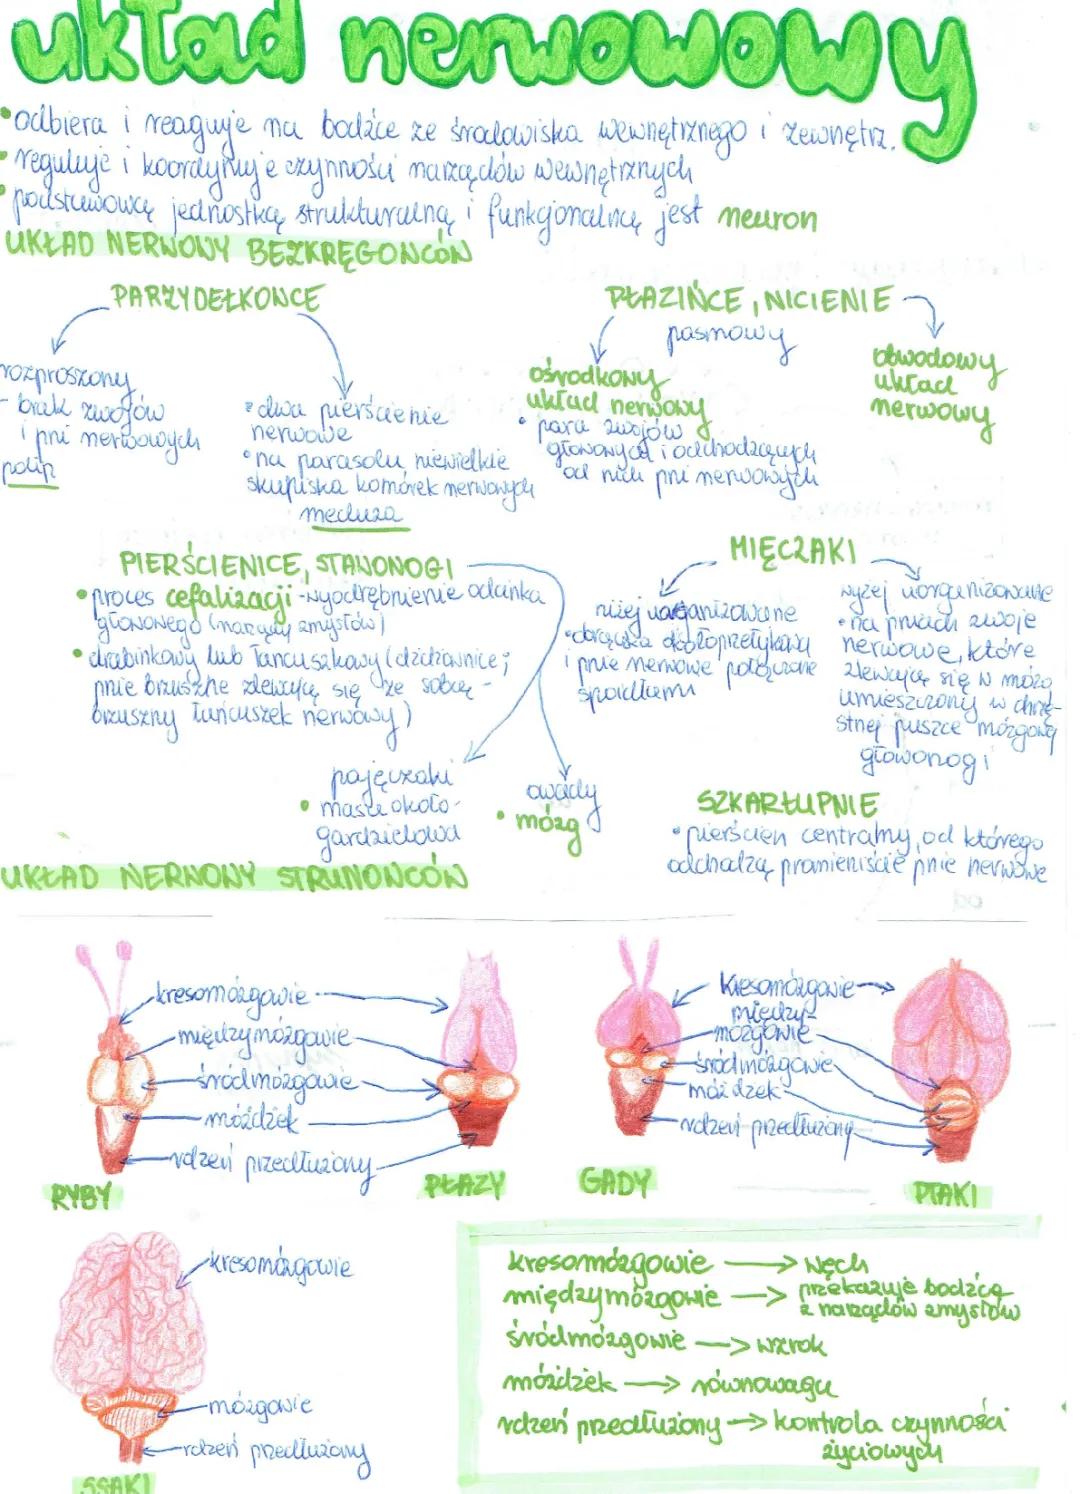 układ nerwowowy
• odbiera i reaguje na bodźce ze środowiska wewnętrznego i zewnętrz.
• reguluje i koordynuje czynności narządów wewnętrznych
• podstawową jednostką strukturalną i funkcjonalną jest neuron
UKŁAD NERWOWY BEZKRĘGOWCÓW
PARZYDEŁKOWCE
rozproszony
- brak zwojów
i pni nerwowych
polip
• dwa pierścienie
nerwowe
• na parasolu niewielkie
skupiska komórek nerwowych
meduza
PŁAZIŃCE, NICIENIE
pasmowy
ośrodkowy
układ nerwowy
• para zwojów
głowowych i odchodzących
od nich pni nerwowych
obwodowy
układ
nerwowy
PIERŚCIENICE, STAWONOGI
• proces cefalizacji - wyodrębnienie odcinka
głowowego (narządy zmysłów)
• drabinkowy lub łańcuszkowy (dżdżownice;
pnie brzuszne zlewają się ze sobą -
brzuszny łańcuszek nerwowy)
pajęczaki
• masa około-
gardzielowa
owady
• mózg
MIĘCZAKI
niżej uorganizowane
• obrączka okołoprzełykowa
i pnie nerwowe połączone
spoidłami
wyżej uorganizowane
• na pniach zwoje
nerwowe, które
zlewają się w mózg
umieszczony w chrzę-
stnej puszce mózgowej
głowonogi
SZKARŁUPNIE
• pierścień centralny, od którego
odchodzą promieniście pnie nerwowe
UKŁAD NERWOWY STRUNOWCÓW
kresomózgowie
międzymózgowie
śródmózgowie
móżdżek
rdzeń przedłużony
RYBY
PŁAZY
Kresomózgowie
między-
mózgowie
śródmózgowie
móżdżek
rdzeń przedłużony
GADY
PTAKI
kresomózgowie
mózgowie
rdzeń przedłużony
SSAKI
kresomózgowie → węch
międzymózgowie → przekazuje bodźce
z narządów zmysłów
śródmózgowie → wzrok
móżdżek → równowaga
rdzeń przedłużony → kontrola czynności
życiowych